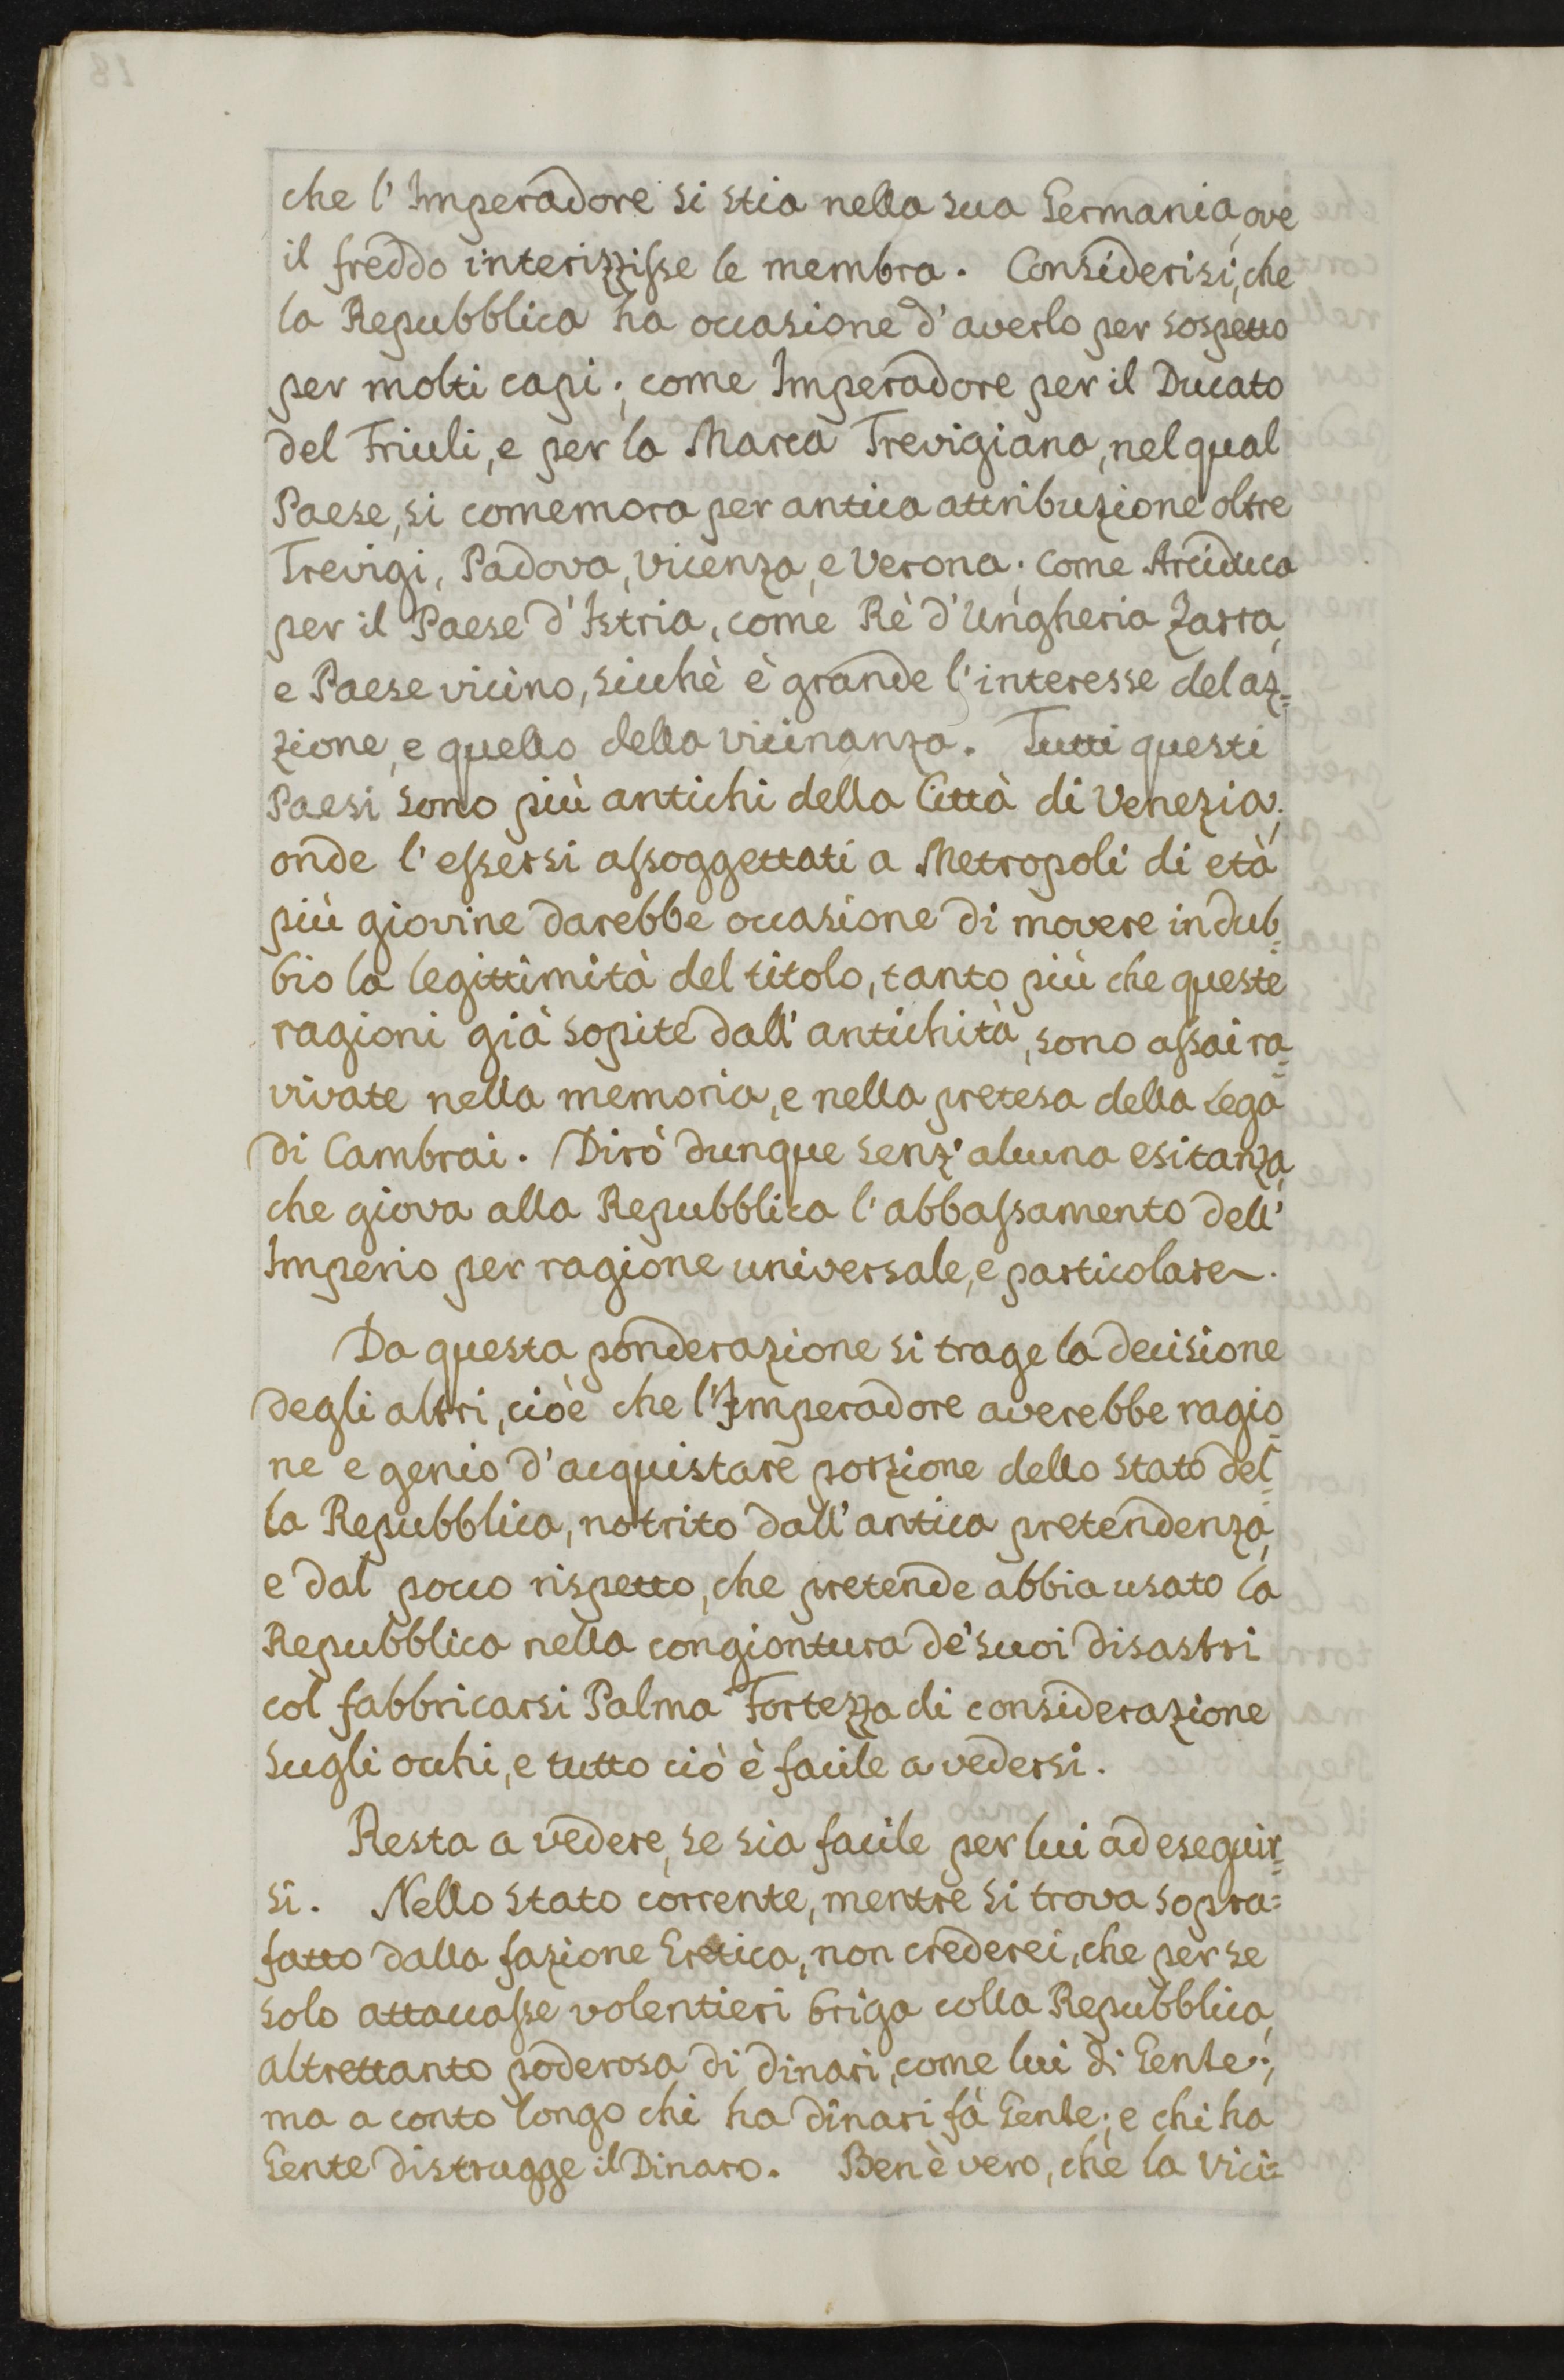 che l'Imperadore si stia nella sua Germania, ove
il freddo interizzisse le membra. Considerisi, che
la Repubblica ha occasione d'averlo per sospetto
per molti capi; come Imperadore per il Ducato
del Friuli, e per la Marca Trevigiana, nel qual
Paese, si comemora per antica attribuzione oltre
Trevigi, Padova, Vicenza, e Verona; come Arciduca
per il Paese d'Istria, come Rè d'Ungheria Zarra,
e Paese vicino, sicchè è grande l'interesse del az=
zione, e quello della vicinanza. Tutti questi
Paesi sono più antichi della Città di Venezia;
onde l'essersi assoggettati a Metropoli di età
più giovine darebbe occasione di movere in dub=
bio la legittimità del titolo, tanto più che queste
ragioni già sopite dall'antichità, sono assai ra=
vivate nella memoria, e nella pretesa della Lega
di Cambrai. Dirò dunque senz'alcuna esitanza,
che giova alla Repubblica l'abbassamento dell'
Imperio per ragione universale, e particolare.
Da questa ponderazione si trage la decisione
degli altri, cioè che l'Imperadore averebbe ragio=
ne e genio d'acquistare porzione dello stato del=
la Repubblica, notrito dall'antica pretendenza,
e dal pocco rispetto, che pretende abbia usato la
Repubblica nella congiontura de' suoi disastri
col fabbricarsi Palma Fortezza di considerazione
sugli occhi, e tutto ciò è facile a vedersi.
Resta a vedere, se sia facile per lui ad eseguir=
si. Nello stato corrente, mentre si trova sopra=
fatto dalla fazione Eretica, non crederei, che per se
solo attaccasse volentieri briga colla Repubblica,
altrettanto poderosa di dinari, come lui di Gente;
ma a conto longo chi ha dinari fà Gente; e chi ha
Gente distrugge il Dinaro. Ben è vero, che la vici=
18